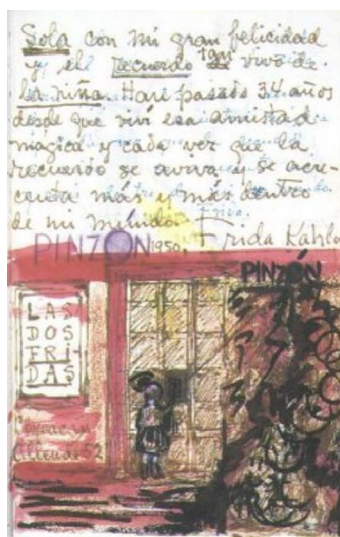 Sola con mi gran felicidad
y el recuerdo tan vivo de
la niña. Han pasado 34 años
desde que viví esa amistad
mágica y cada vez que la
recuerdo se aviva y se acre-
cienta más y más dentro
de mi mundo.
PINZÓN 1950. Frida Kahlo
PINZÓN
LAS
DOS
FRI
DAS
Coyoacán
Allende 52